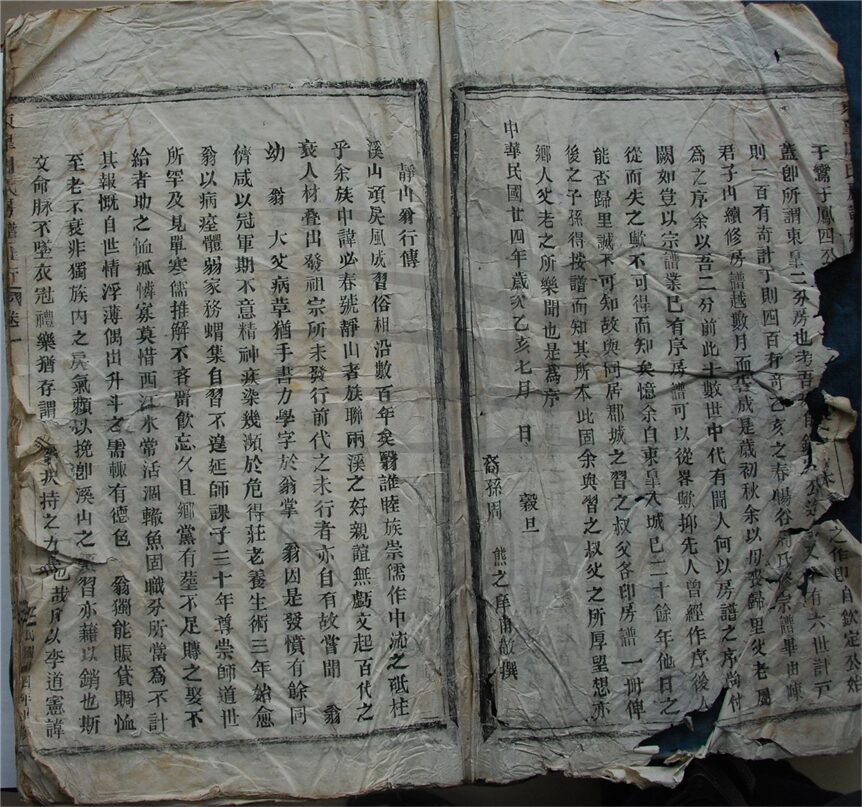 于鸞于鳳四
蓋卽所謂東皐二分房也考吾
則一百有奇計丁則四百有奇乙亥之春暘谷周氏修宗譜畢由暕
君子山續修房譜越數月而告成是歲初秋余以母喪歸里父老屬
爲之序余以吾二分前此十數世中代有聞人何以房譜之序尚付
闕如豈以宗譜業已有序房譜可以從畧歟抑先人曾經作序後
從而失之歟不可得而知矣憶余自東皐入城已二十餘年他日之
能否歸里誠不可知故與同居郡城之習之叔父各印房譜一冊俾
後之子孫得按譜而知其所本此固余與習之叔父之所厚望想亦
鄉人父老之所樂聞也是爲序
中華民國廿四年歲次乙亥七月 日 穀旦
裔孫周 熊之 撰
靜山翁行傳
溪山頑戾風成習俗相沿數百年矣翳誰睦族崇儒作中流之砥柱
乎余族中諱必春號靜山者族聯兩溪之好親誼無虧文起百代之
衰人材疊出發祖宗所未發行前代之未行者亦自有故嘗聞 翁
幼 翁 大父病草猶手書力學字於翁掌 翁因是發憤有餘同
儕咸以冠軍期不意精神疾染幾瀕於危得莊老養生術三年始愈
翁以病痊體弱家務蝟集自習不遑延師課子三十年尊崇師道世
所罕及見單寒儒推解不吝嘗飲忘久且鄉黨有塟不足賻之娶不
給者助之恤孤憐寡莫惜西江水常活涸轍魚固職分所當爲不計
其報慨自世情浮薄偶出升斗之需輙有德色 翁獨能賑貸賙恤
至老不衰非獨族內之戾氣賴以挽卽溪山之 習亦藉以銷也斯
文命脉不墜衣冠禮樂猶存謂 翁扶持之力 也哉 以李道憲諱